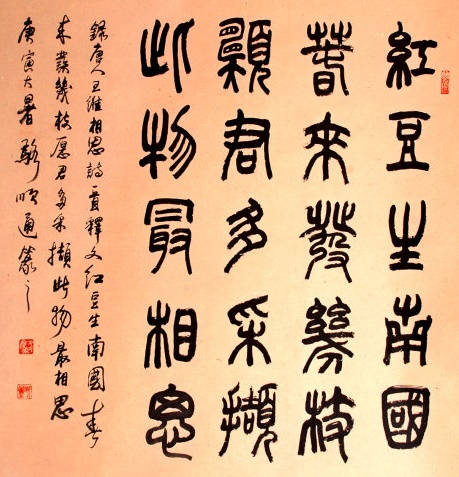 紅豆生南國
春來發幾枝
願君多采擷
此物最相思
錄唐人王維相思詩一首釋文红豆生南國春
来發幾枝愿君多采擷此物最相思
庚寅大暑駱通篆之